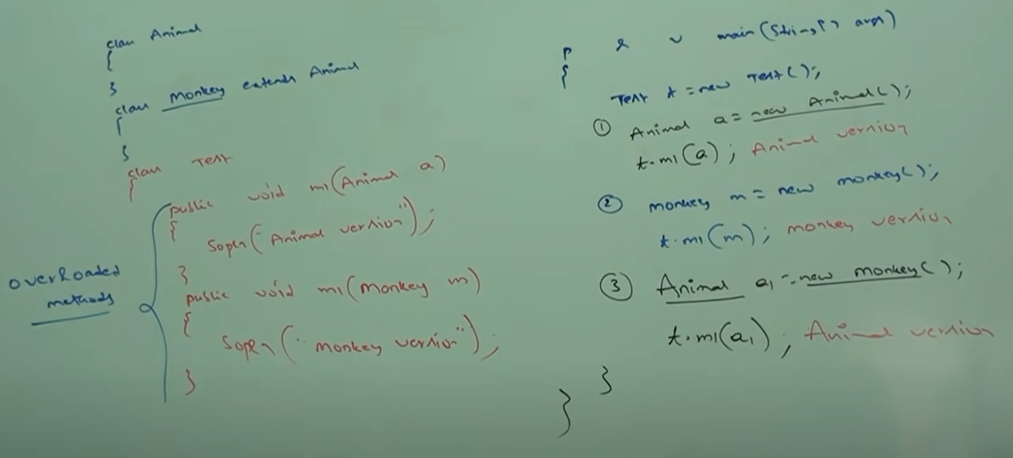 class Animal
{
}
class Monkey extends Animal
{
}
class Test
{
public void m1(Animal a)
{
Sopln("Animal version");
}
public void m1(Monkey m)
{
Sopln("monkey version");
}
overloaded
methods
P S V main(String[] args)
{
Test t=new Test();
① Animal a=new Animal();
t.m1(a); Animal version
② monkey m=new monkey();
t.m1(m); monkey version
③ Animal a1=new monkey();
t.m1(a1); Animal version
}
}